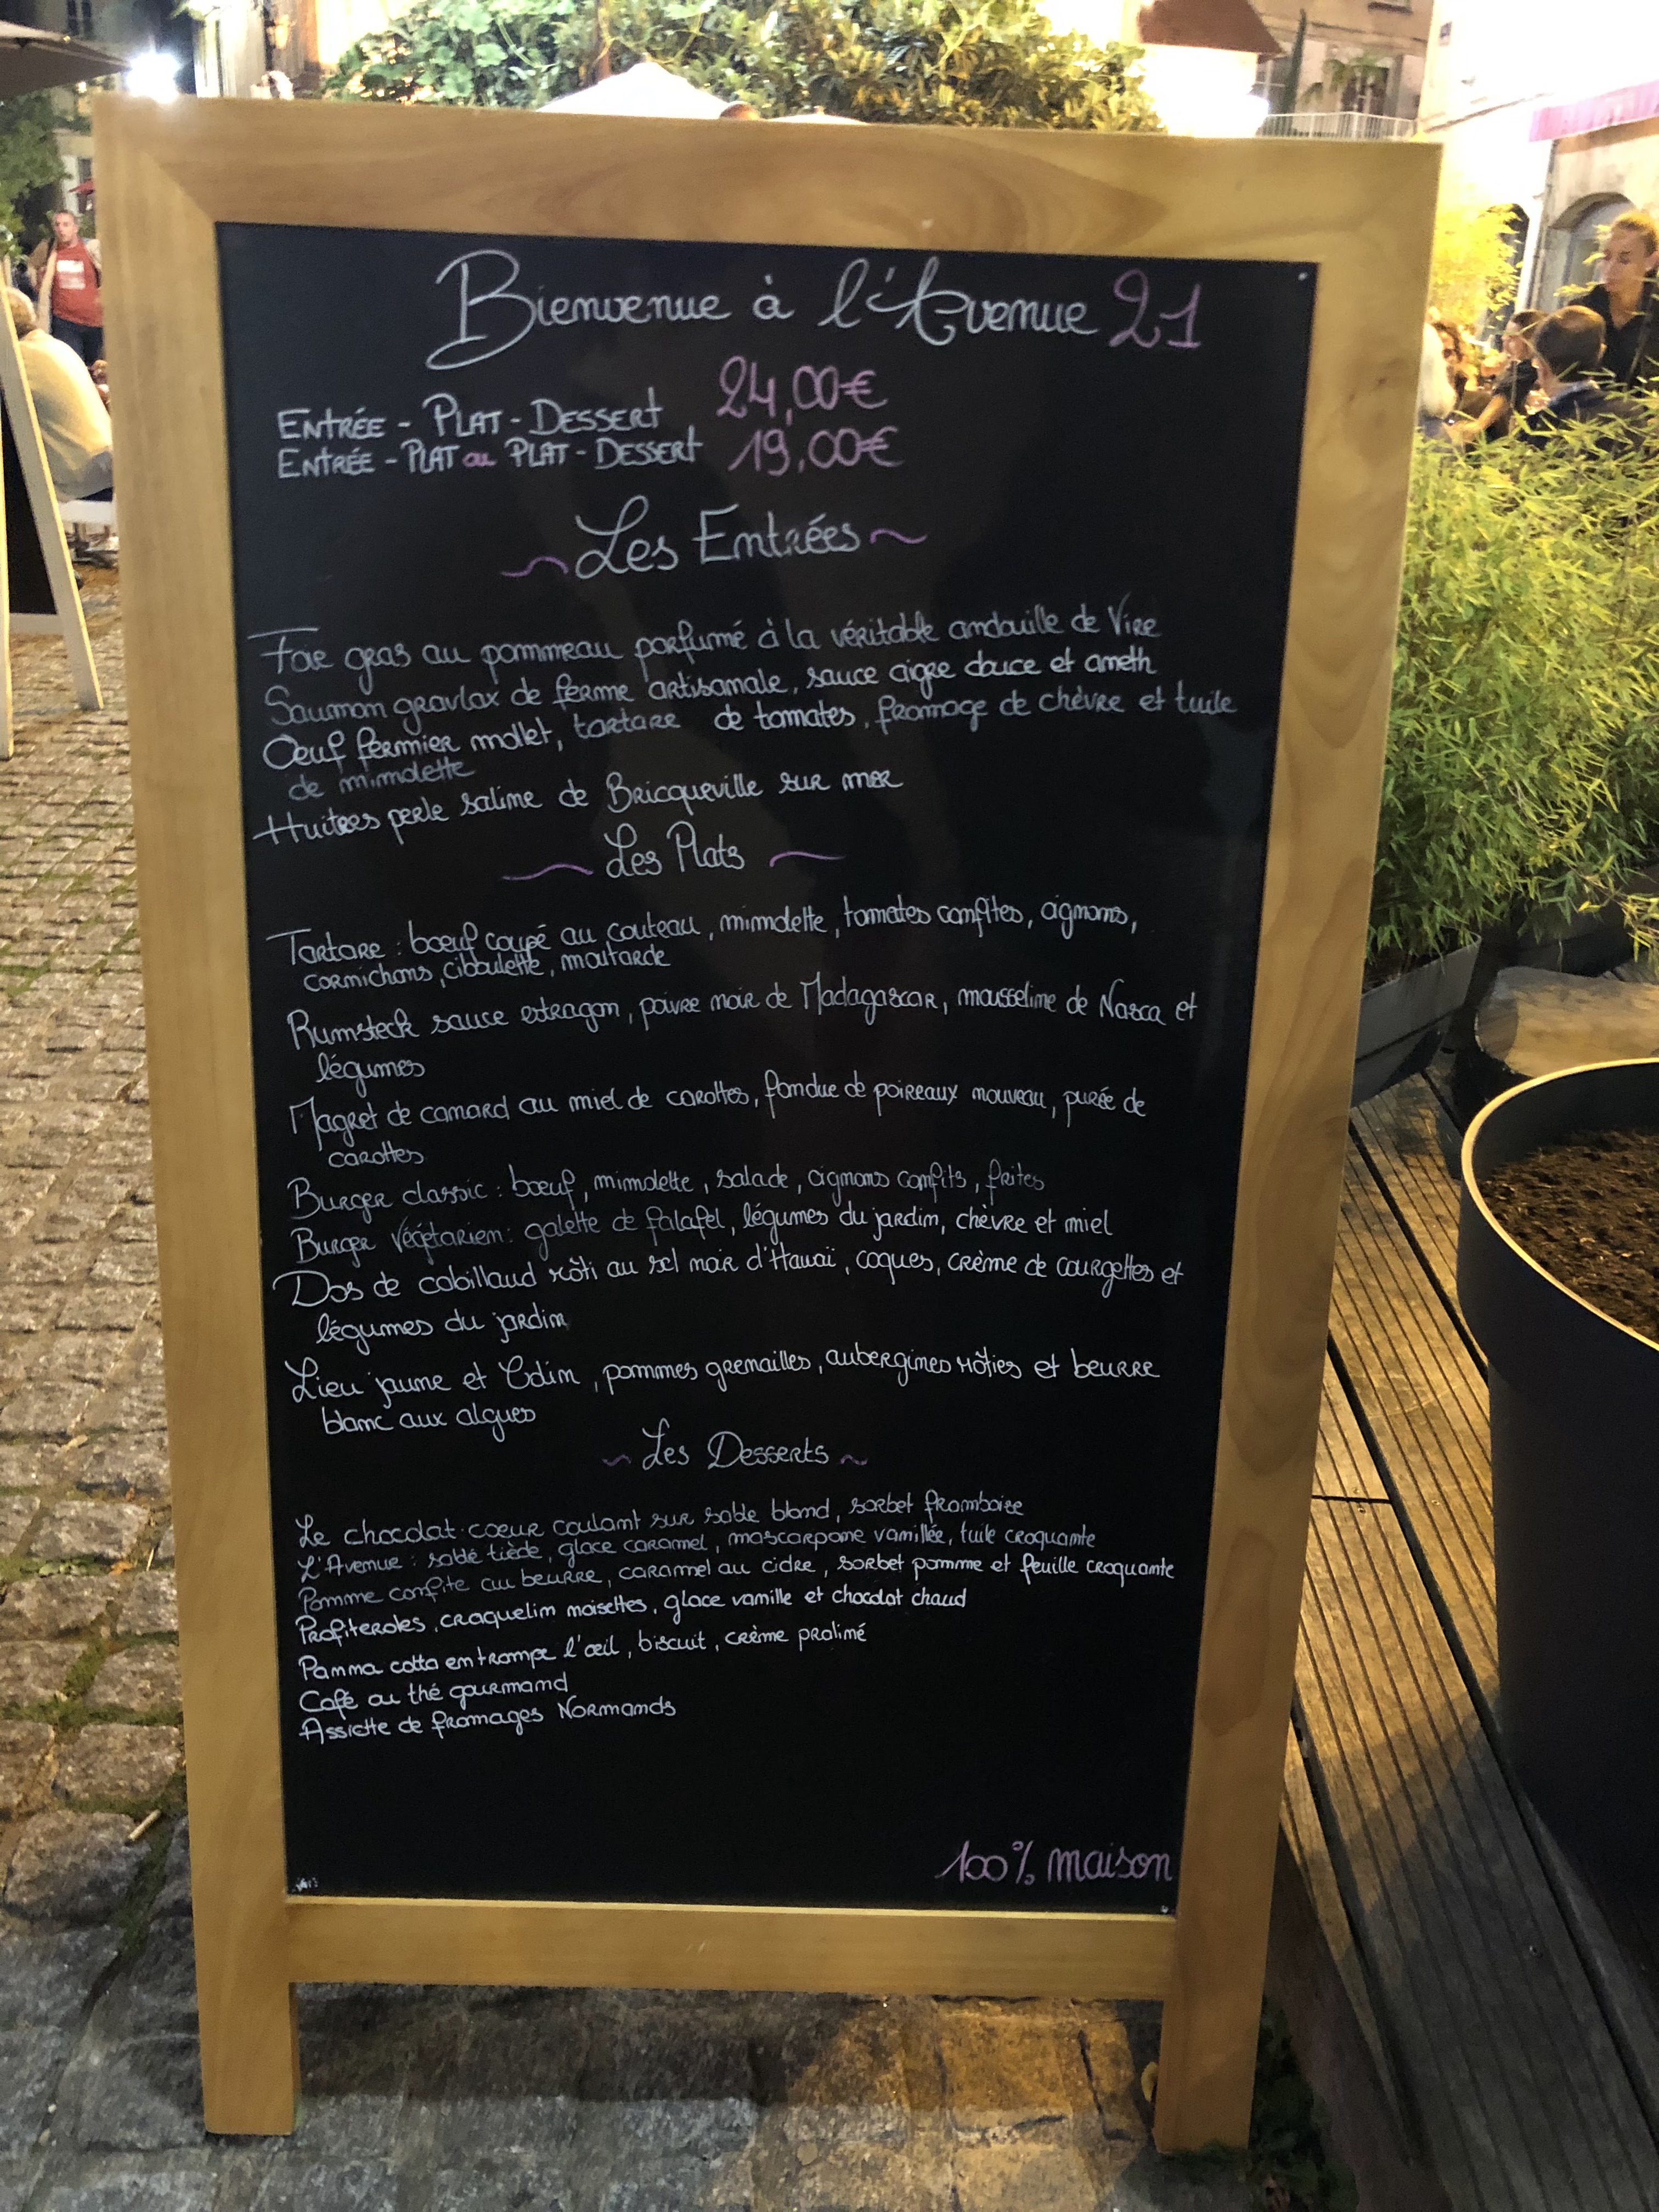 Bienvenue à l'Avenue 21
ENTRÉE - PLAT - DESSERT 24,00€
ENTRÉE - PLAT ou PLAT - DESSERT 19,00€
~ Les Entrées ~
Foie gras au pommeau parfumé à la véritable andouille de Vire
Saumon gravlax de ferme artisanale, sauce aigre douce et aneth
Œuf fermier mollet, tartare de tomates, fromage de chèvre et tuile
de mimolette
Huitres perle saline de Bricqueville sur mer
~ Les Plats ~
Tartare : bœuf coupé au couteau, mimolette, tomates confites, oignons,
cornichons, ciboulette, moutarde
Rumsteck sauce estragon, poivre noir de Madagascar, mousseline de Nasca et
légumes
Magret de canard au miel de carottes, fondue de poireaux nouveau, purée de
carottes
Burger classic : bœuf, mimolette, salade, oignons confits, frites
Burger végétarien : galette de falafel, légumes du jardin, chèvre et miel
Dos de cabillaud rôti au sel noir d'Hawaï, coques, crème de courgettes et
légumes du jardin
Lieu jaune et Odin, pommes grenailles, aubergines rôties et beurre
blanc aux algues
~ Les Desserts ~
Le chocolat : coeur coulant sur sable blond, sorbet framboise
L'Avenue : sablé tiède, glace caramel, mascarpone vanillée, tuile croquante
Pomme confite au beurre, caramel au cidre, sorbet pomme et feuille croquante
Profiteroles, craquelin noisettes, glace vanille et chocolat chaud
Panna cotta en trompe l'œil, biscuit, crème praliné
Café ou thé gourmand
Assiette de fromages Normands
100% maison